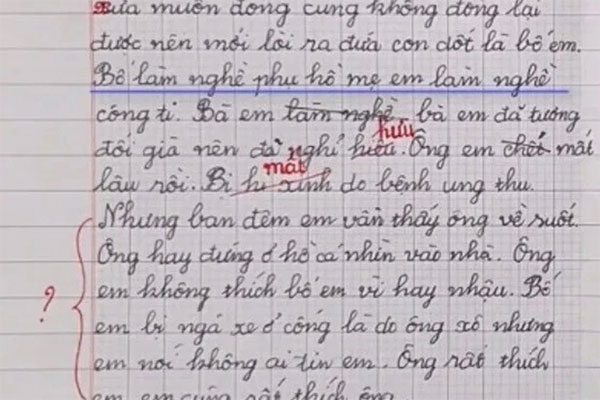 xưa muốn đóng cũng không đóng lại
được nên mới lòi ra đứa con dốt là bố em.
Bố làm nghề phụ hồ mẹ em làm nghề
công ti. Bà em làm nghề, bà em đã tương
đối già nên đã nghỉ hiêu hưu. Ông em chết mất
lâu rồi. Bị hi sinh mất do bệnh ung thư.
Nhưng ban đêm em vẫn thấy ông về suốt.
Ông hay đứng ở hồ cá nhìn vào nhà. Ông
em không thích bố em vì hay nhậu. Bố
? em bị ngã xe ở cống là do ông xô nhưng
em nói không ai tin em. Ông rất thích
em em cũng rất thích ông.